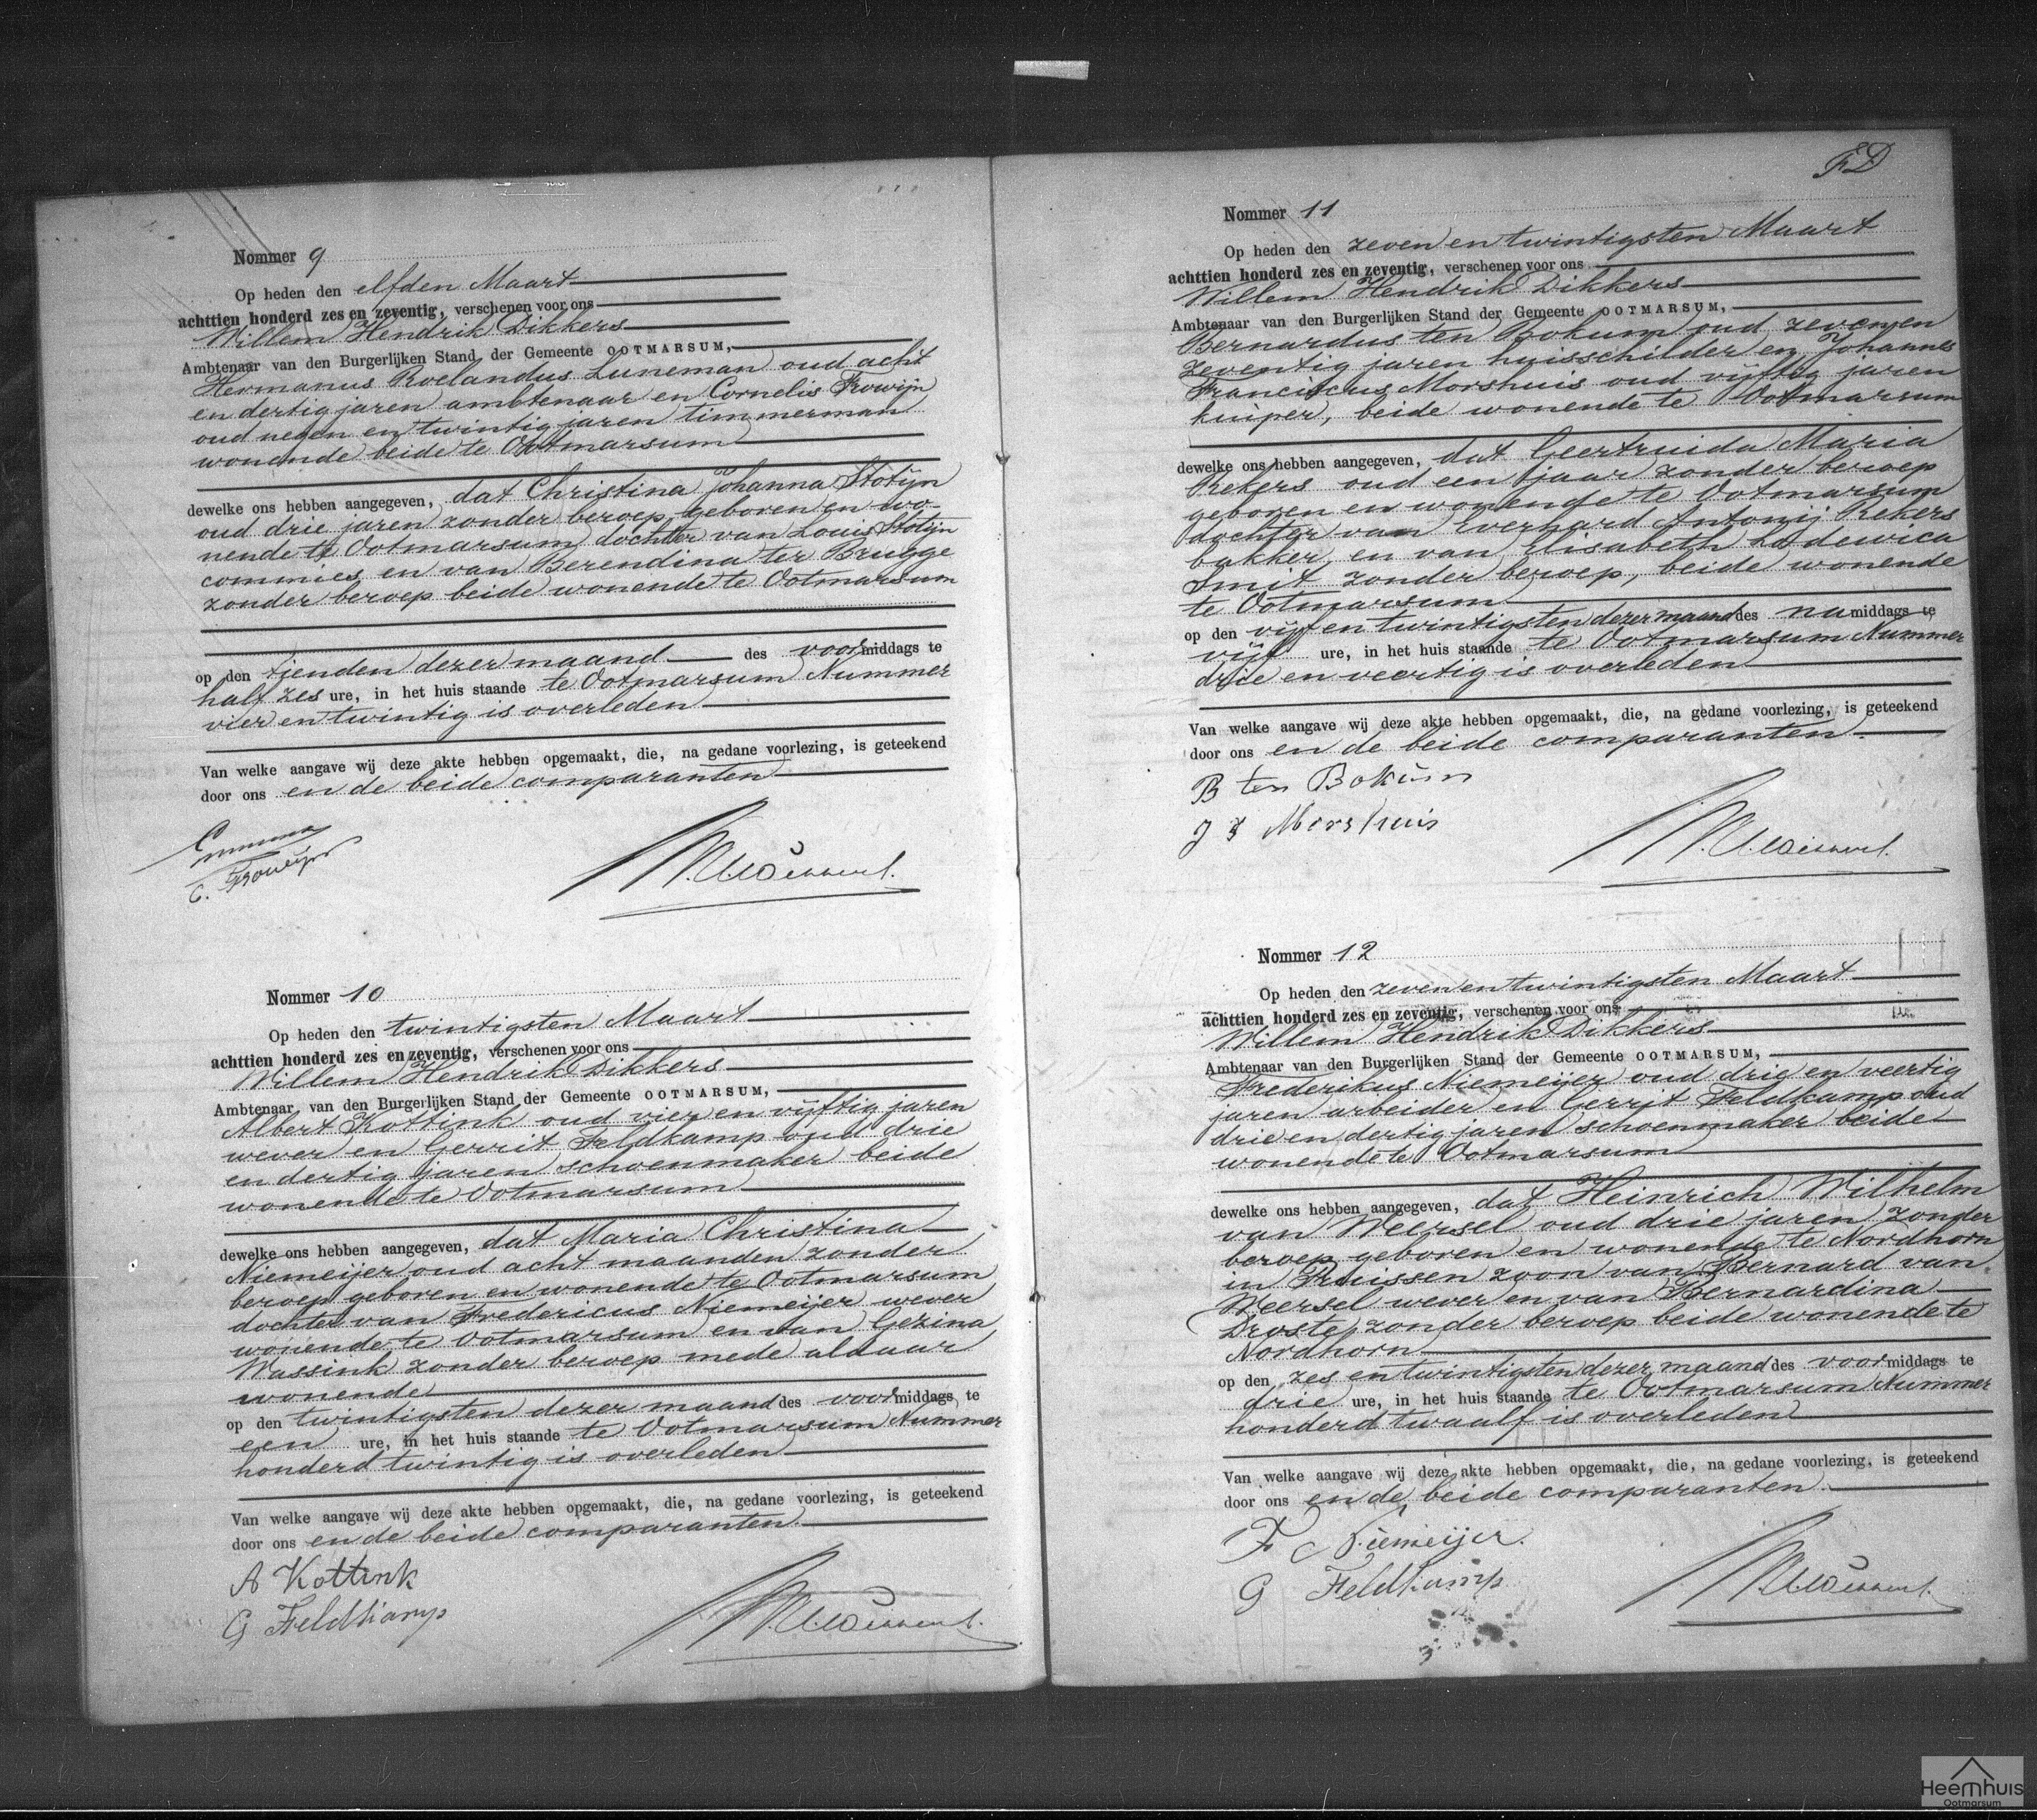 Nommer 9
Op heden den elfden Maart
achttien honderd zes en zeventig, verschenen voor ons
Willem Hendrik Dikkers
Ambtenaar van den Burgerlijken Stand der Gemeente OOTMARSUM,
Hermanus Roelandus Luneman oud acht
en dertig jaren ambtenaar en Cornelis Frowijn
oud negen en twintig jaren timmerman
wonende beide te Ootmarsum
dewelke ons hebben aangegeven, dat Christina Johanna Stotijn
oud drie jaren zonder beroep geboren en wo-
nende te Ootmarsum dochter van Louis Stotijn
commies en van Berendina ter Brugge
zonder beroep beide wonende te Ootmarsum
op den tienden dezer maand des voormiddags te
half zes ure, in het huis staande te Ootmarsum Nummer
vier en twintig is overleden
Van welke aangave wij deze akte hebben opgemaakt, die, na gedane voorlezing, is geteekend
door ons en de beide comparanten
C. Frowijn
Nommer 10
Op heden den twintigsten Maart
achttien honderd zes en zeventig, verschenen voor ons
Willem Hendrik Dikkers
Ambtenaar van den Burgerlijken Stand der Gemeente OOTMARSUM,
Albert Kottink oud vier en vijftig jaren
wever en Gerrit Feldkamp oud drie
en dertig jaren schoenmaker beide
wonende te Ootmarsum
dewelke ons hebben aangegeven, dat Maria Christina
Niemeijer oud acht maanden zonder
beroep geboren en wonende te Ootmarsum
dochter van Fredericus Niemeijer wever
wonende te Ootmarsum en van Gezina
Wassink zonder beroep mede aldaar
wonende
op den twintigsten dezer maand des voormiddags te
een ure, in het huis staande te Ootmarsum Nummer
honderd twintig is overleden
Van welke aangave wij deze akte hebben opgemaakt, die, na gedane voorlezing, is geteekend
door ons en de beide comparanten.
A Kottink
G Feldkamp
FD
Nommer 11
Op heden den zeven en twintigsten Maart
achttien honderd zes en zeventig, verschenen voor ons
Willem Hendrik Dikkers
Ambtenaar van den Burgerlijken Stand der Gemeente OOTMARSUM,
Bernardus ten Bokum oud zeven en
zeventig jaren huisschilder en Johannes
Franciscus Morshuis oud vijftig jaren
kuiper, beide wonende te Ootmarsum
dewelke ons hebben aangegeven, dat Geertruida Maria
Rekers oud een jaar zonder beroep
geboren en wonende te Ootmarsum
dochter van Everhard Antonij Rekers
bakker, en van Elisabeth Lodewica
Smit zonder beroep, beide wonende
te Ootmarsum
op den vijf en twintigsten dezer maand des namiddags te
vijf ure, in het huis staande te Ootmarsum Nummer
drie en veertig is overleden
Van welke aangave wij deze akte hebben opgemaakt, die, na gedane voorlezing, is geteekend
door ons en de beide comparanten.
B ten Bokum
J F Morshuis
Nommer 12
Op heden den zeven en twintigsten Maart
achttien honderd zes en zeventig, verschenen voor ons
Willem Hendrik Dikkers
Ambtenaar van den Burgerlijken Stand der Gemeente OOTMARSUM,
Frederikus Niemeijer oud drie en veertig
jaren arbeider en Gerrit Feldkamp oud
drie en dertig jaren schoenmaker beide
wonende te Ootmarsum
dewelke ons hebben aangegeven, dat Heinrich Wilhelm
van Weersel oud drie jaren zonder
beroep geboren en wonende te Nordhorn
in Pruissen zoon van Bernard van
Weersel wever en van Bernardina
Droste, zonder beroep beide wonende te
Nordhorn
op den zes en twintigsten dezer maand des voormiddags te
drie ure, in het huis staande te Ootmarsum Nummer
honderd twaalf is overleden
Van welke aangave wij deze akte hebben opgemaakt, die, na gedane voorlezing, is geteekend
door ons en de beide comparanten.
F Niemeijer.
G Feldkamp
Heemhuis
Ootmarsum